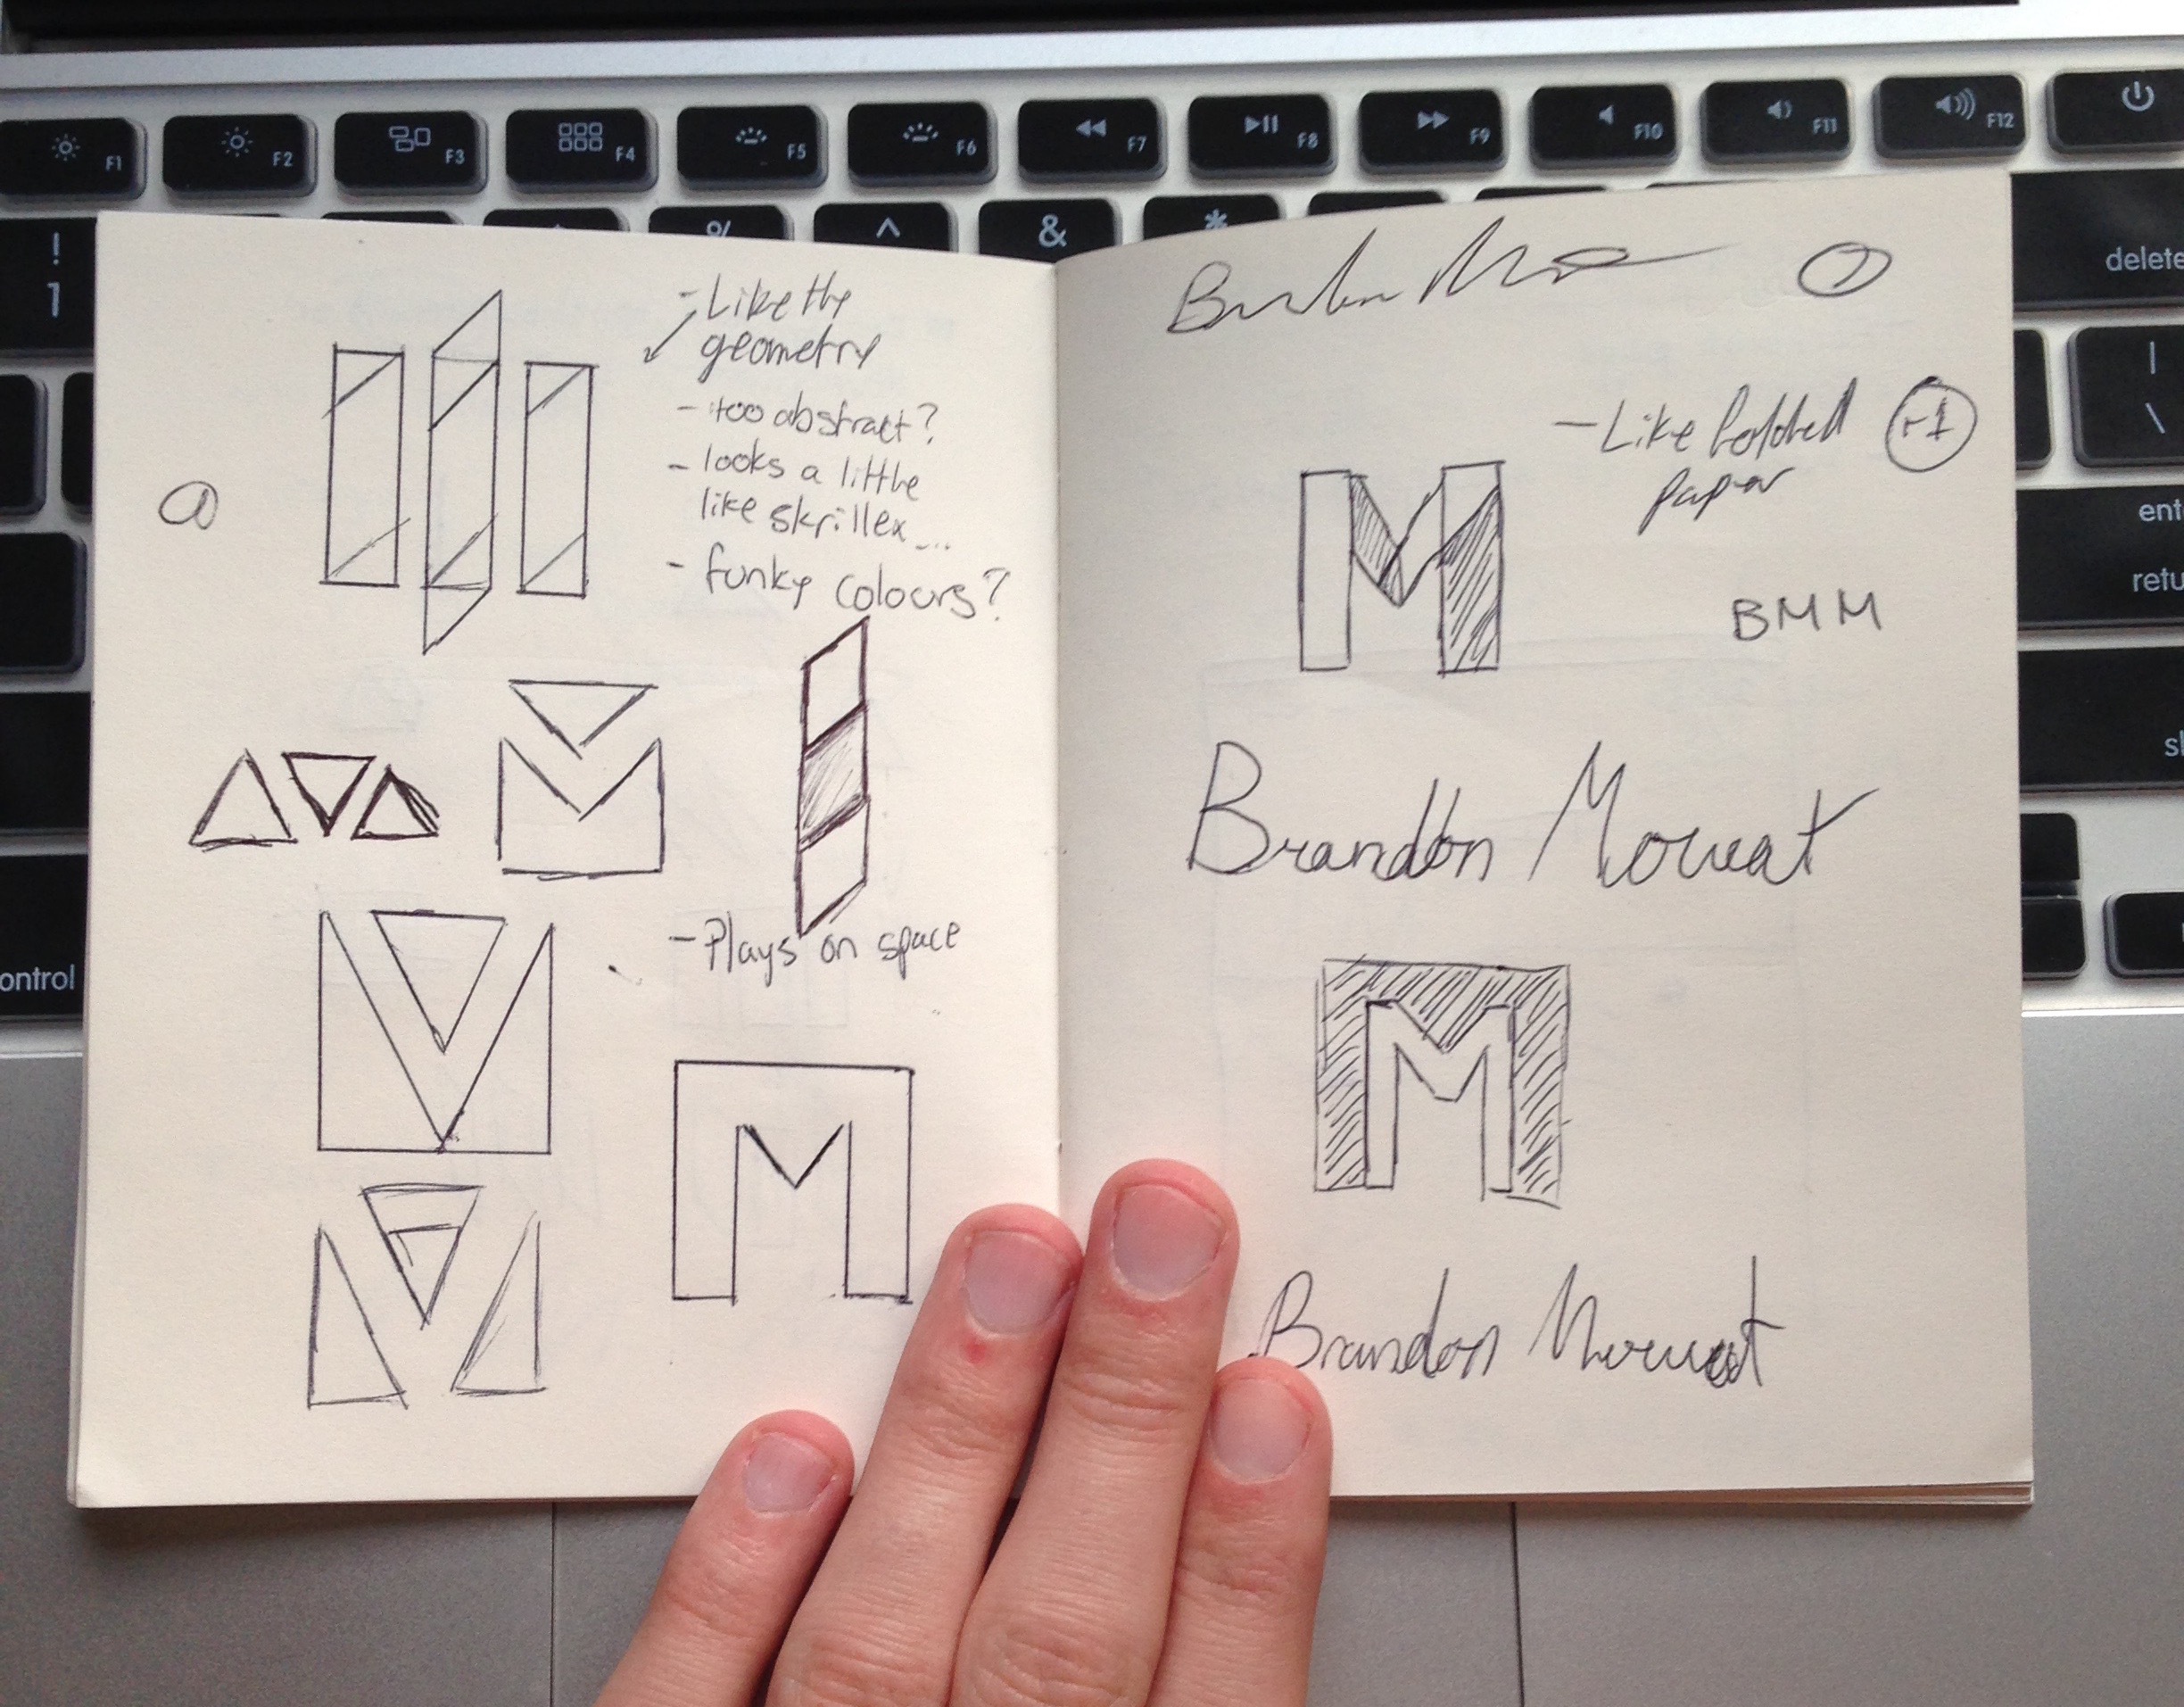 F1 F2 F3 F4 F5 F6 F7 F8 F9 F10 F11 F12
! % ^ & *
1
delete
|
\
ent
retu
sh
ontrol
- Like the
geometry
- too abstract?
- looks a little
like skrillex...
- funky colours?
- Plays on space
M
- Like folded
paper
+1
M
BMM
Brandon Mowat
M
Brandon Mowat